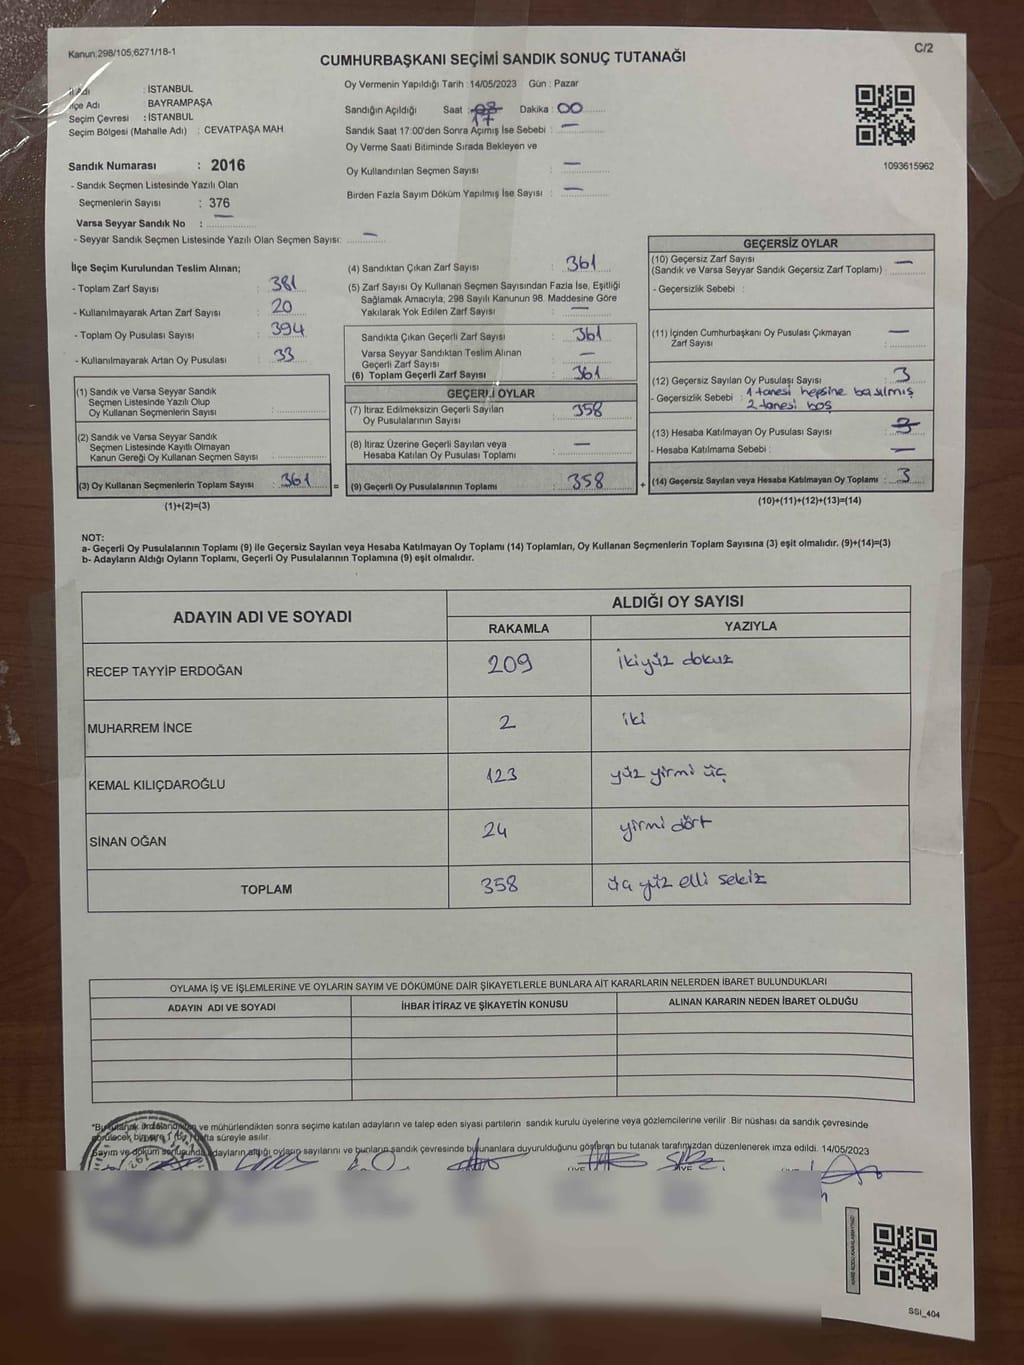 Kanun:298/105,6271/18-1
C/2
CUMHURBAŞKANI SEÇİMİ SANDIK SONUÇ TUTANAĞI
İl Adı : İSTANBUL
İlçe Adı BAYRAMPAŞA
Seçim Çevresi : İSTANBUL
Seçim Bölgesi (Mahalle Adı) : CEVATPAŞA MAH
Sandık Numarası : 2016
- Sandık Seçmen Listesinde Yazılı Olan
Seçmenlerin Sayısı : 376
Varsa Seyyar Sandık No : —
- Seyyar Sandık Seçmen Listesinde Yazılı Olan Seçmen Sayısı: —
Oy Vermenin Yapıldığı Tarih :14/05/2023 Gün : Pazar
Sandığın Açıldığı Saat : 17 Dakika : 00
Sandık Saat 17:00'den Sonra Açımış İse Sebebi : —
Oy Verme Saati Bitiminde Sırada Bekleyen ve
Oy Kullandırılan Seçmen Sayısı : —
Birden Fazla Sayım Döküm Yapılmış İse Sayısı : —
1093615962
İlçe Seçim Kurulundan Teslim Alınan;
- Toplam Zarf Sayısı : 381
- Kullanılmayarak Artan Zarf Sayısı : 20
- Toplam Oy Pusulası Sayısı : 394
- Kullanılmayarak Artan Oy Pusulası : 33
(1) Sandık ve Varsa Seyyar Sandık
Seçmen Listesinde Yazılı Olup
Oy Kullanan Seçmenlerin Sayısı :
(2) Sandık ve Varsa Seyyar Sandık
Seçmen Listesinde Kayıtlı Olmayan
Kanun Gereği Oy Kullanan Seçmen Sayısı :
(3) Oy Kullanan Seçmenlerin Toplam Sayısı : 361
(1)+(2)=(3)
(4) Sandıktan Çıkan Zarf Sayısı : 361
(5) Zarf Sayısı Oy Kullanan Seçmen Sayısından Fazla İse, Eşitliği
Sağlamak Amacıyla, 298 Sayılı Kanunun 98. Maddesine Göre
Yakılarak Yok Edilen Zarf Sayısı : —
Sandıkta Çıkan Geçerli Zarf Sayısı : 361
Varsa Seyyar Sandıktan Teslim Alınan
Geçerli Zarf Sayısı : —
(6) Toplam Geçerli Zarf Sayısı : 361
GEÇERLİ OYLAR
(7) İtiraz Edilmeksizin Geçerli Sayılan
Oy Pusulalarının Sayısı : 358
(8) İtiraz Üzerine Geçerli Sayılan veya
Hesaba Katılan Oy Pusulası Toplamı : —
= (9) Geçerli Oy Pusulalarının Toplamı : 358
GEÇERSİZ OYLAR
(10) Geçersiz Zarf Sayısı —
(Sandık ve Varsa Seyyar Sandık Geçersiz Zarf Toplamı) :
- Geçersizlik Sebebi :
(11) İçinden Cumhurbaşkanı Oy Pusulası Çıkmayan —
Zarf Sayısı :
(12) Geçersiz Sayılan Oy Pusulası Sayısı : 3
- Geçersizlik Sebebi : 1 tanesi hepsine basılmış
2 tanesi boş
(13) Hesaba Katılmayan Oy Pusulası Sayısı : 3
- Hesaba Katılmama Sebebi : —
+ (14) Geçersiz Sayılan veya Hesaba Katılmayan Oy Toplamı : 3
(10)+(11)+(12)+(13)=(14)
NOT:
a- Geçerli Oy Pusulalarının Toplamı (9) ile Geçersiz Sayılan veya Hesaba Katılmayan Oy Toplamı (14) Toplamları, Oy Kullanan Seçmenlerin Toplam Sayısına (3) eşit olmalıdır. (9)+(14)=(3)
b- Adayların Aldığı Oyların Toplamı, Geçerli Oy Pusulalarının Toplamına (9) eşit olmalıdır.
ADAYIN ADI VE SOYADI
ALDIĞI OY SAYISI
RAKAMLA YAZIYLA
RECEP TAYYİP ERDOĞAN 209 ikiyüz dokuz
MUHARREM İNCE 2 iki
KEMAL KILIÇDAROĞLU 123 yüz yirmi üç
SİNAN OĞAN 24 yirmi dört
TOPLAM 358 üç yüz elli sekiz
OYLAMA İŞ VE İŞLEMLERİNE VE OYLARIN SAYIM VE DÖKÜMÜNE DAİR ŞİKAYETLERLE BUNLARA AİT KARARLARIN NELERDEN İBARET BULUNDUKLARI
ADAYIN ADI VE SOYADI İHBAR İTİRAZ VE ŞİKAYETİN KONUSU ALINAN KARARIN NEDEN İBARET OLDUĞU
ve mühürlendikten sonra seçime katılan adayların ve talep eden siyasi partilerin sandık kurulu üyelerine veya gözlemcilerine verilir. Bir nüshası da sandık çevresinde
görülecek bir yere 1 (bir) hafta süreyle asılır.
Sayım ve döküm sonucunda adayların aldığı oyların sayılarını ve bunların sandık çevresinde bulunanlara duyurulduğunu gösteren bu tutanak tarafımızdan düzenlenerek imza edildi. 14/05/2023
SSI_404